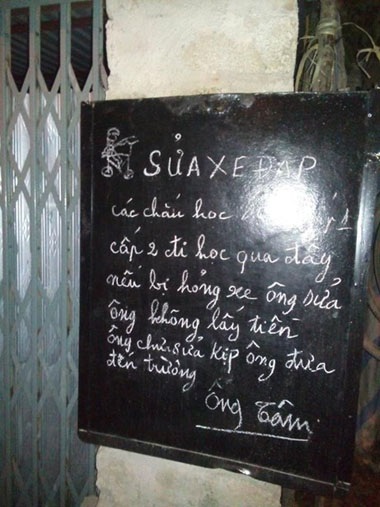 SỬA XE ĐẠP
các cháu học cấp 1
cấp 2 đi học qua đây
nếu bị hỏng xe ông sửa
ông không lấy tiền
ông chưa sửa kịp ông đưa
đến trường
Ông Tâm